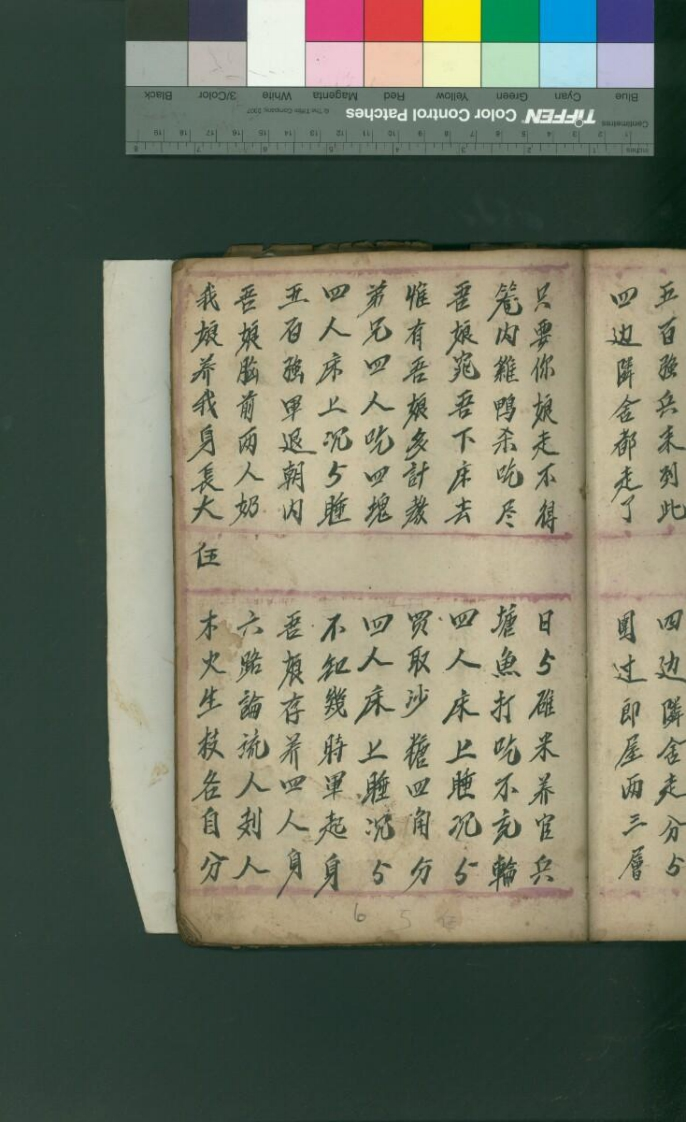 五百強兵来到此
四边隣舍走分5
四边隣舍都走了
圍过郎屋两三層
只要你娘走不得
日5碓米养官兵
笼内雞鴨杀吃尽
塘魚打吃不充輪
吾娘宛吾下床去
四人床上睡况5
惟有吾娘多計教
買取沙糖四角分
弟兄四人吃四塊
四人床上睡况5
四人床上况5睡
不知幾時軍起身
五百強軍退朝内
吾娘存养四人身
吾娘胸前两人奶
六路論流人到人
我娘养我身長大
木火生枝各自分
Black
3/Color
White
Magenta
Red
Yellow
Green
Cyan
Blue
© The Tiffen Company, 2007
TIFFEN Color Control Patches
Centimetres
Inches
6 5